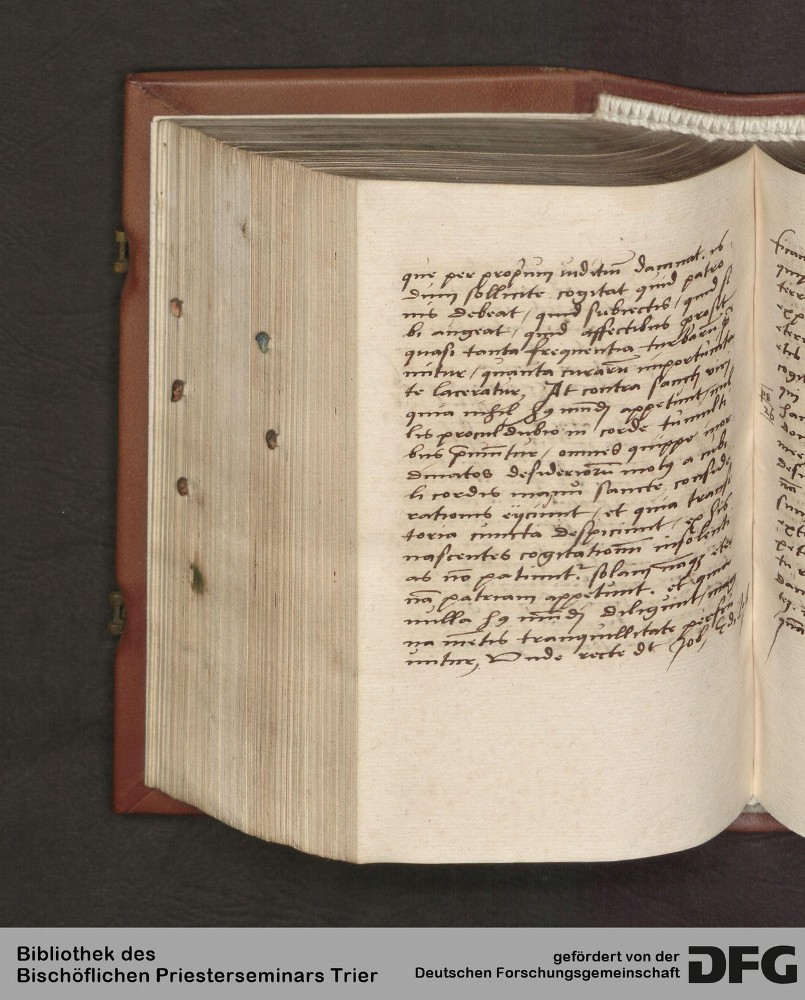 que per propriũ iuditiũ damnat. is
dum sollicite cogitat quid patro
nis debeat / quid subiectis / quid si
bi augeat / quid affectibus prosit
quasi tanta frequentia turbarũ p̃
mitur / quanta curarũ importunita
te laceratur, At contra sancti viri
quia nihil h9 mũdi appetunt / nul
lis procul dubio in corde tumulti
bus p̃mũtur / omnes quippe inor
dinatos desideriorũ motus a cubi
li cordis manu sancte conside
rationis eijciunt / et quia transi
toria cuncta despiciunt / ex his
nascentes cogitationũ insolenti
as nõ patiunt᷑. solam nãq3 eter
nã patriam appetunt. et quia
nulla h9 mũdi diligunt / mag
na mẽtis tranquillitate perfru
untur, Unde recte dt Job,
Bibliothek des
Bischöflichen Priesterseminars Trier
gefördert von der
Deutschen Forschungsgemeinschaft
DFG